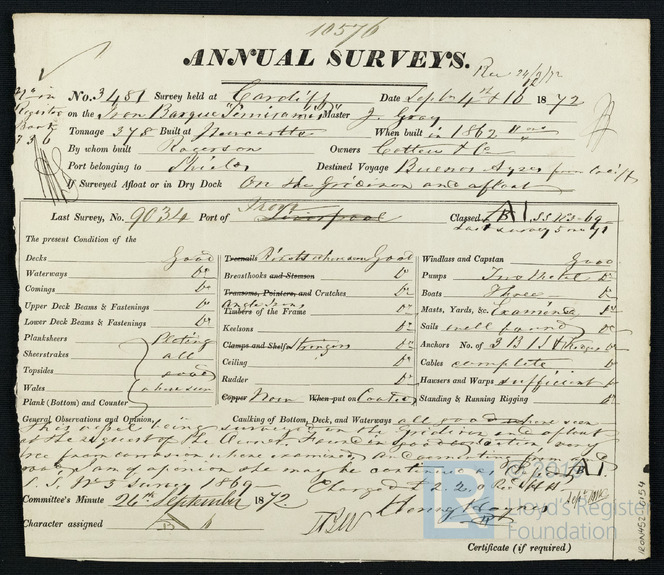 10576
ANNUAL SURVEYS.
Rec 24/9/72
No. 3481 Survey held at Cardiff Date Sept 4th & 10 1872
on the Iron Barque "Semiramis" Master J. Gray
Tonnage 378 Built at Newcastle When built in 1862
By whom built Rogerson Owners Cottew & Co
Port belonging to Shields Destined Voyage Buenos Ayres from Cardiff
If Surveyed Afloat or in Dry Dock On the Gridiron and afloat
No in Register Book 736
Last Survey, No. 9034 Port of Liverpool Classed A1 S.S No3-69
Last survey 5 mo 71
The present Condition of the
Decks Good
Waterways Do
Comings Do
Upper Deck Beams & Fastenings Do
Lower Deck Beams & Fastenings Do
Planksheers Plating
Sheerstrakes all
Topsides good
Wales where seen
Plank (Bottom) and Counter
Treenails Rivets where seen Good
Breasthooks and Stemson Do
Transoms, Pointers, and Crutches Do
Angle Irons
Timbers of the Frame Do
Keelsons Do
Clamps and Shelfs Stringers Do
Ceiling Do
Rudder Do
Copper Now When put on Coated
Windlass and Capstan Good
Pumps Two
Boats Three Do
Masts, Yards, &c. Examined Do
Sails well found Do
Anchors No. of 3 B 1 S
Cables complete Do
Hausers and Warps sufficient Do
Standing & Running Rigging Do
General Observations and Opinion, Caulking of Bottom, Deck, and Waterways all good where seen
This vessel being surveyed on the Gridiron and afloat
at the request of the Owner. Found in good condition and
free from corrosion where examined
and in my opinion she may be continue as A1
S.S. No 3 survey 1869 Charged £2.2.0
Committee's Minute 26th September 1872.
Henry
Character assigned
Certificate (if required)
© 2019
Lloyd's Register
Foundation
IRON452-0154